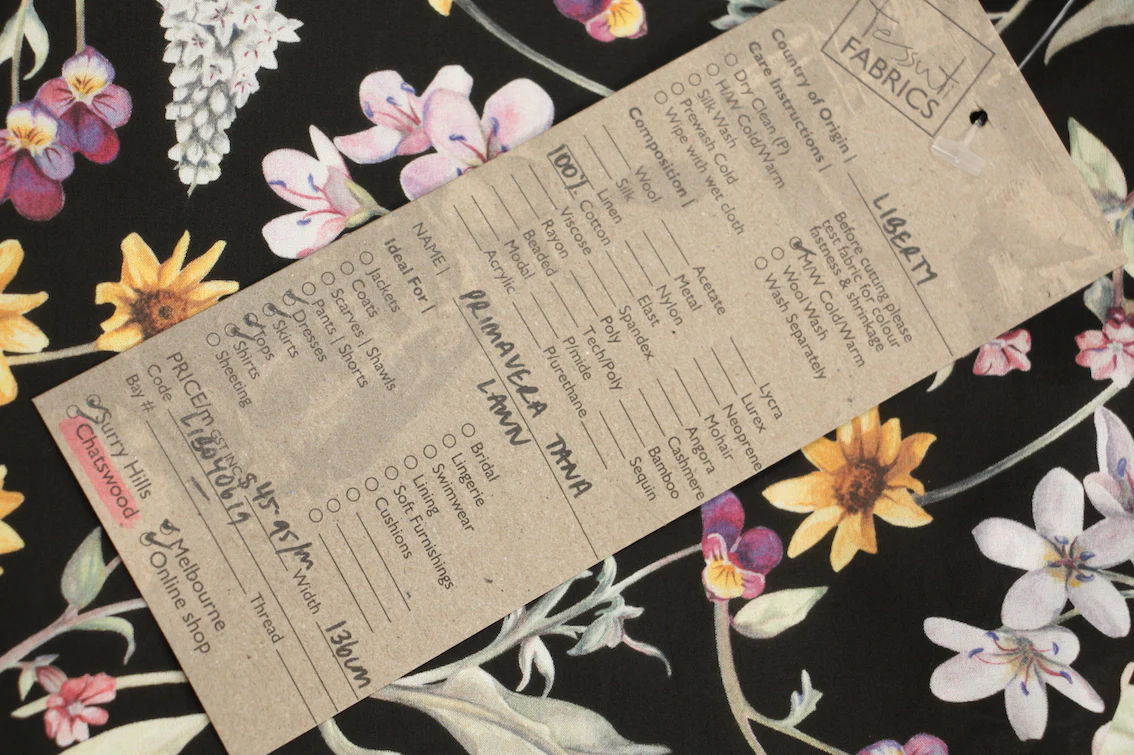 Tessuti
FABRICS
Country of Origin | LIBERTY
Care Instructions |
Before cutting please
test fabric for colour
fastness & shrinkage
Dry Clean (P)
H/W Cold/Warm
Silk Wash
Prewash Cold
Wipe with wet cloth
M/W Cold/Warm
Wool Wash
Wash Separately
Composition |
Wool
Silk
Linen
100% Cotton
Viscose
Rayon
Beaded
Modal
Acrylic
Acetate
Metal
Nylon
Elast
Spandex
Poly
Tech/Poly
P/mide
P/urethane
Lycra
Lurex
Neoprene
Mohair
Angora
Cashmere
Bamboo
Sequin
NAME | PRIMAVERA TANA
LAWN
Ideal For |
Jackets
Coats
Scarves | Shawls
Pants | Shorts
Dresses
Skirts
Tops
Shirts
Sheeting
Bridal
Lingerie
Swimwear
Lining
Soft Furnishings
Cushions
PRICE/m GST INC $45.95/m Width 136cm
Code LIB040619 Thread
Bay #. —
Surry Hills
Chatswood
Melbourne
Online shop